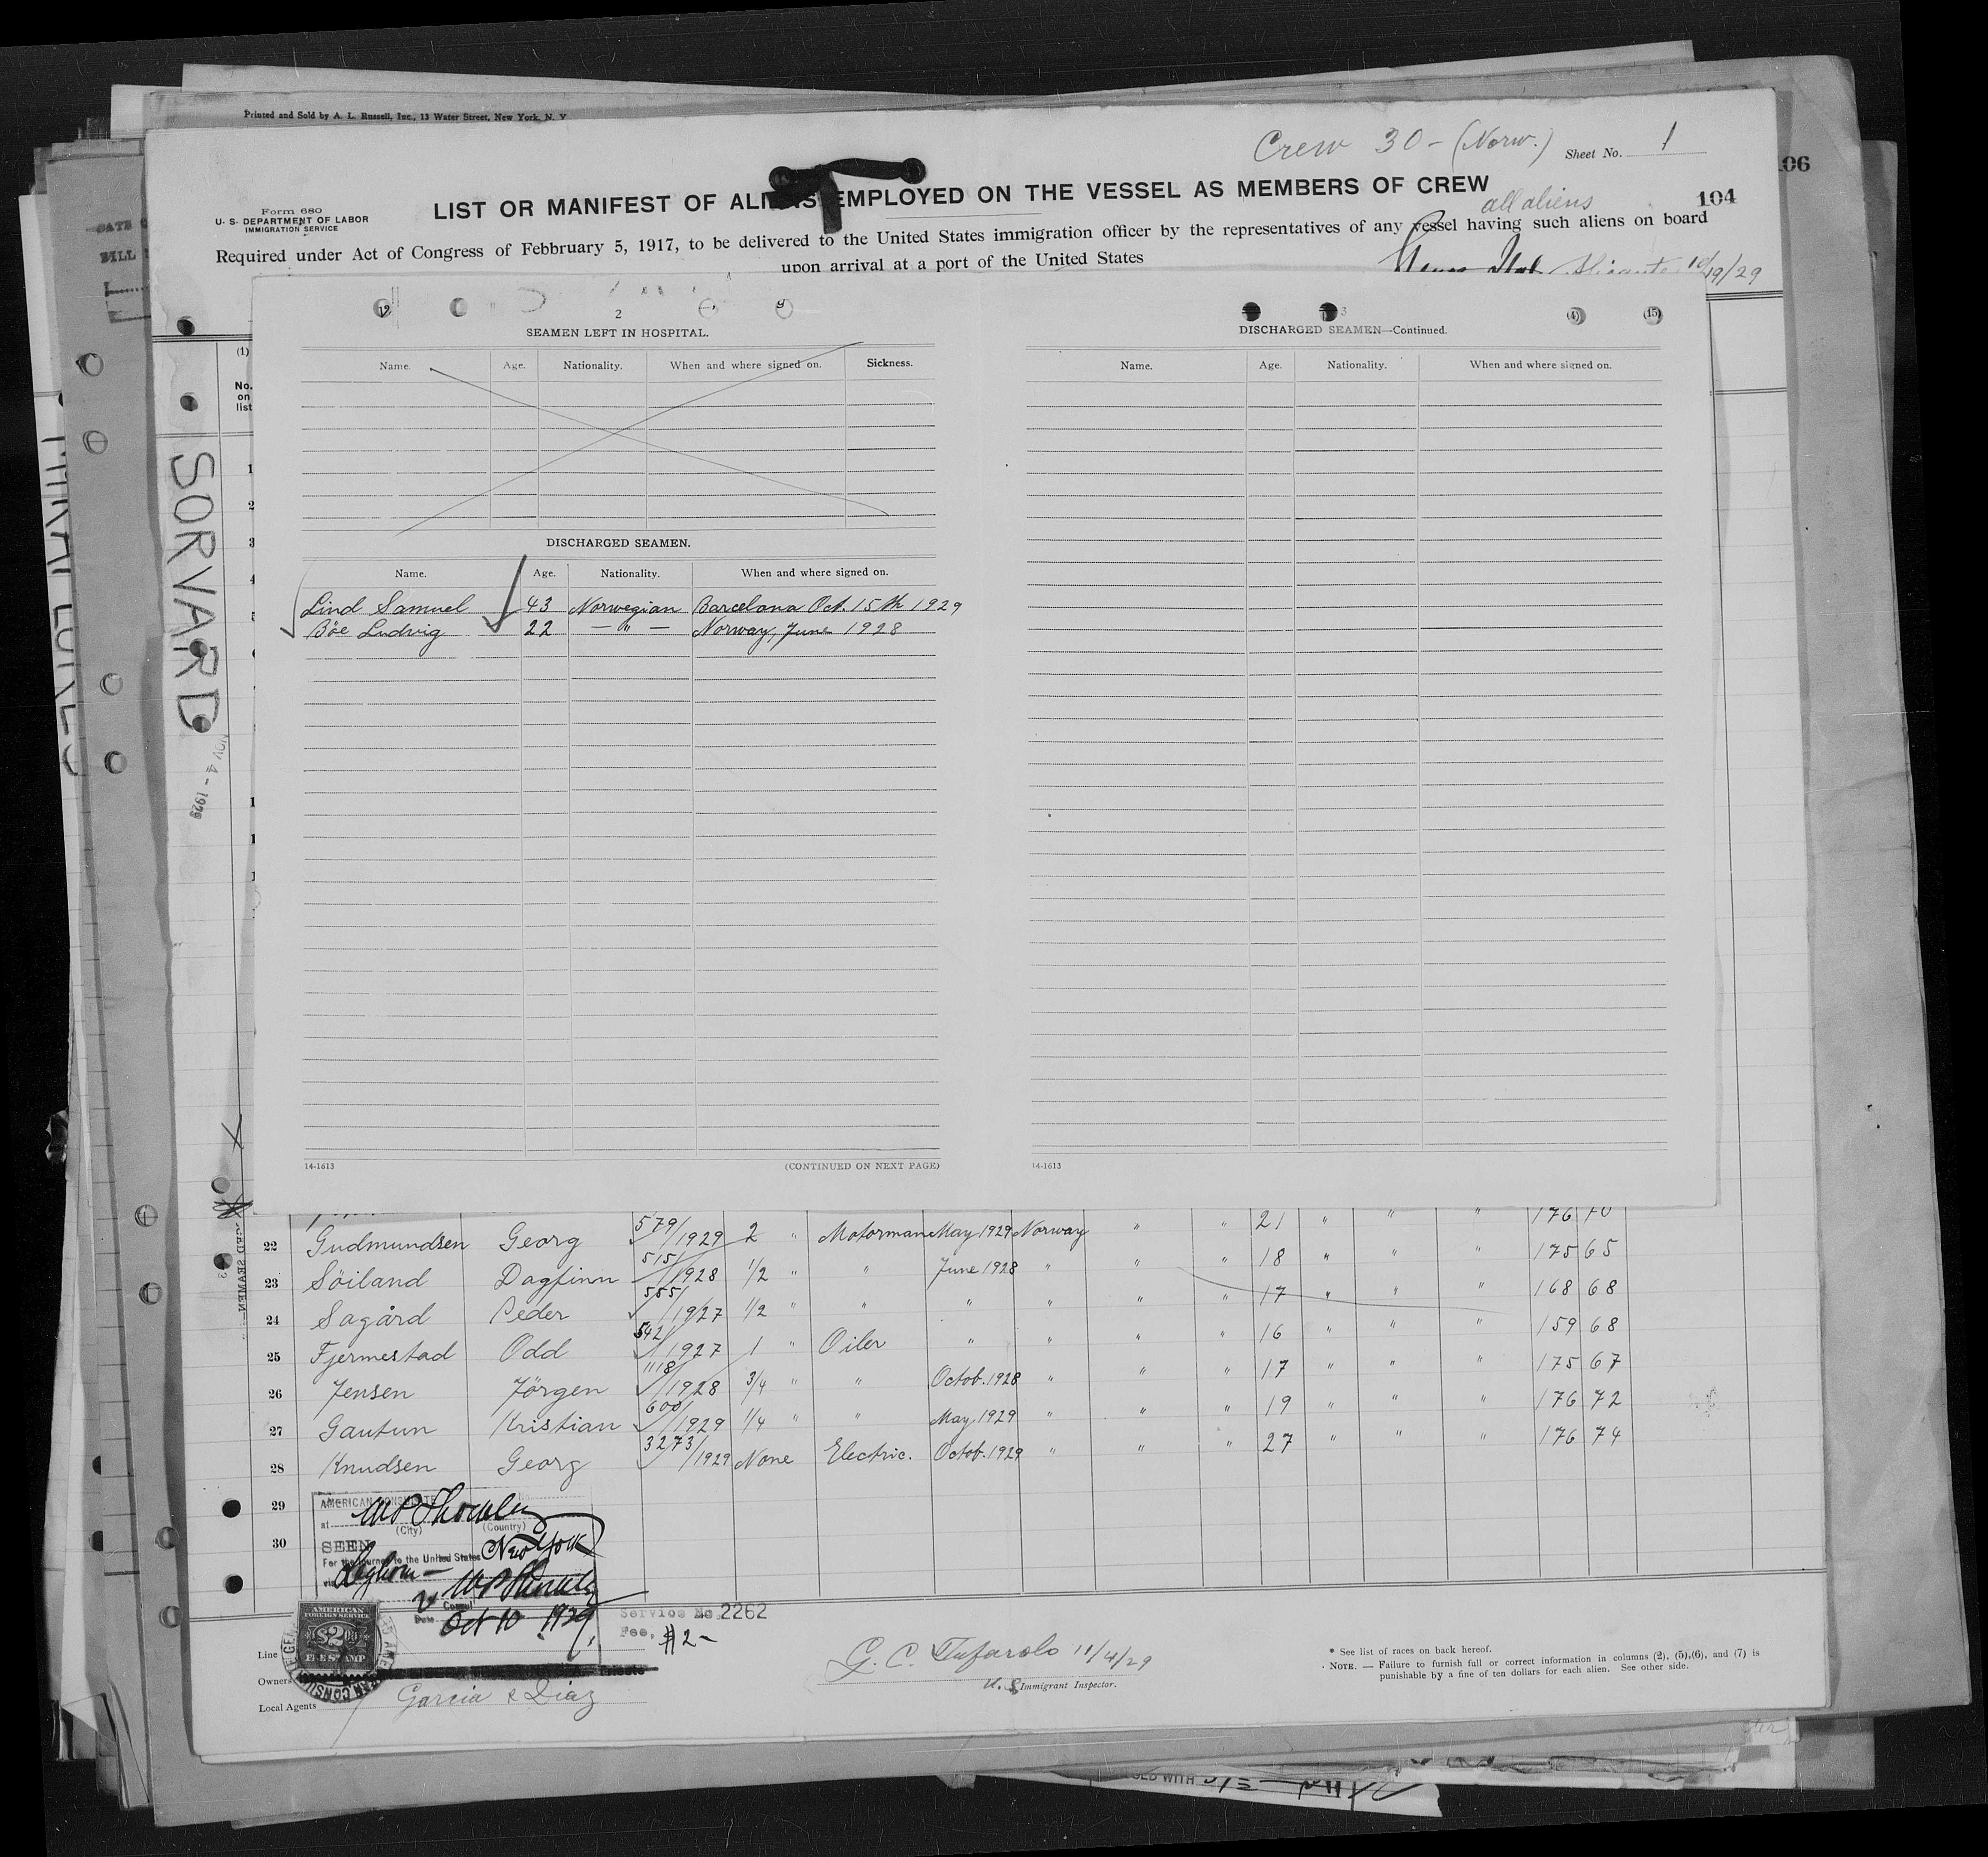 Printed and Sold by A. L. Russell, Inc., 13 Water Street, New York, N. Y
Crew 30 - (Norw.) Sheet No. 1
106
Form 680
U. S. DEPARTMENT OF LABOR
IMMIGRATION SERVICE
LIST OR MANIFEST OF ALIENS EMPLOYED ON THE VESSEL AS MEMBERS OF CREW
all aliens
104
Required under Act of Congress of Febbruary 5, 1917, to be delivered to the United States immigration officer by the representatives of any vessel having such aliens on board
upon arrival at a port of the United States
Alicante 10/19/29
2
SEAMEN LEFT IN HOSPITAL.
Name. Age. Nationality. When and where signed on. Sickness.
DISCHARGED SEAMEN.
Name. Age. Nationality. When and where signed on.
Lind Samuel 43 Norwegian Barcelona Oct. 15th 1929
Böe Ludvig 22 — " — Norway, June 1928
14-1613 (CONTINUED ON NEXT PAGE)
3
(4) (15)
DISCHARGED SEAMEN—Continued.
Name. Age. Nationality. When and where signed on.
14-1613
(1)
No. on list
SORVARD
NOV 4 - 1929
21 " " " 176 70
22 Gudmundsen Georg 579/1929 2 " Motorman May 1929 Norway " " 18 " " " 175 65
23 Söiland Dagfinn 515/1928 1/2 " " June 1928 " " " 17 " " " 168 68
24 Sagård Peder 555/1927 1/2 " " " " " " 16 " " " 159 68
25 Fjermestad Odd 542/1927 1 " Oiler " " " " 17 " " " 175 67
26 Jensen Jörgen 1118/1928 3/4 " " Octob. 1928 " " " 19 " " " 176 72
27 Gautun Kristian 600/1929 1/4 " " May, 1929 " " " 27 " " " 176 74
28 Knudsen Georg 3273/1929 None Electric. Octob. 1929 "
29
30
AMERICAN CONSULATE
at
(City) (Country)
SEEN
For the journey to the United States
New York
via Leghorn
Consul
Date Oct 10 1929
Service No. 2262
Fee, $2-
AMERICAN
FOREIGN SERVICE
$2.00
FEE STAMP
Line
Owners
Local Agents Garcia & Diaz
G. C. Tufarolo 11/4/29
U. S. Immigrant Inspector.
* See list of races on back hereof.
NOTE. — Failure to furnish full or correct information in columns (2), (5),(6), and (7) is
punishable by a fine of ten dollars for each alien. See other side.